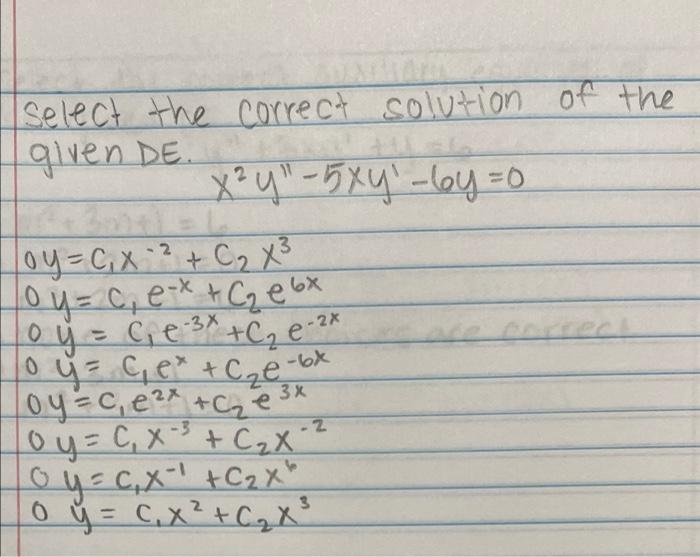 select the correct solution of the
given DE.
x²y" - 5xy' - 6y = 0
o y = C₁x⁻² + C₂x³
o y = C₁e⁻ˣ + C₂e⁶ˣ
o y = C₁e⁻³ˣ + C₂e⁻²ˣ
o y = C₁eˣ + C₂e⁻⁶ˣ
o y = C₁e²ˣ + C₂e³ˣ
o y = C₁x⁻³ + C₂x⁻²
o y = C₁x⁻¹ + C₂x⁶
o y = C₁x² + C₂x³